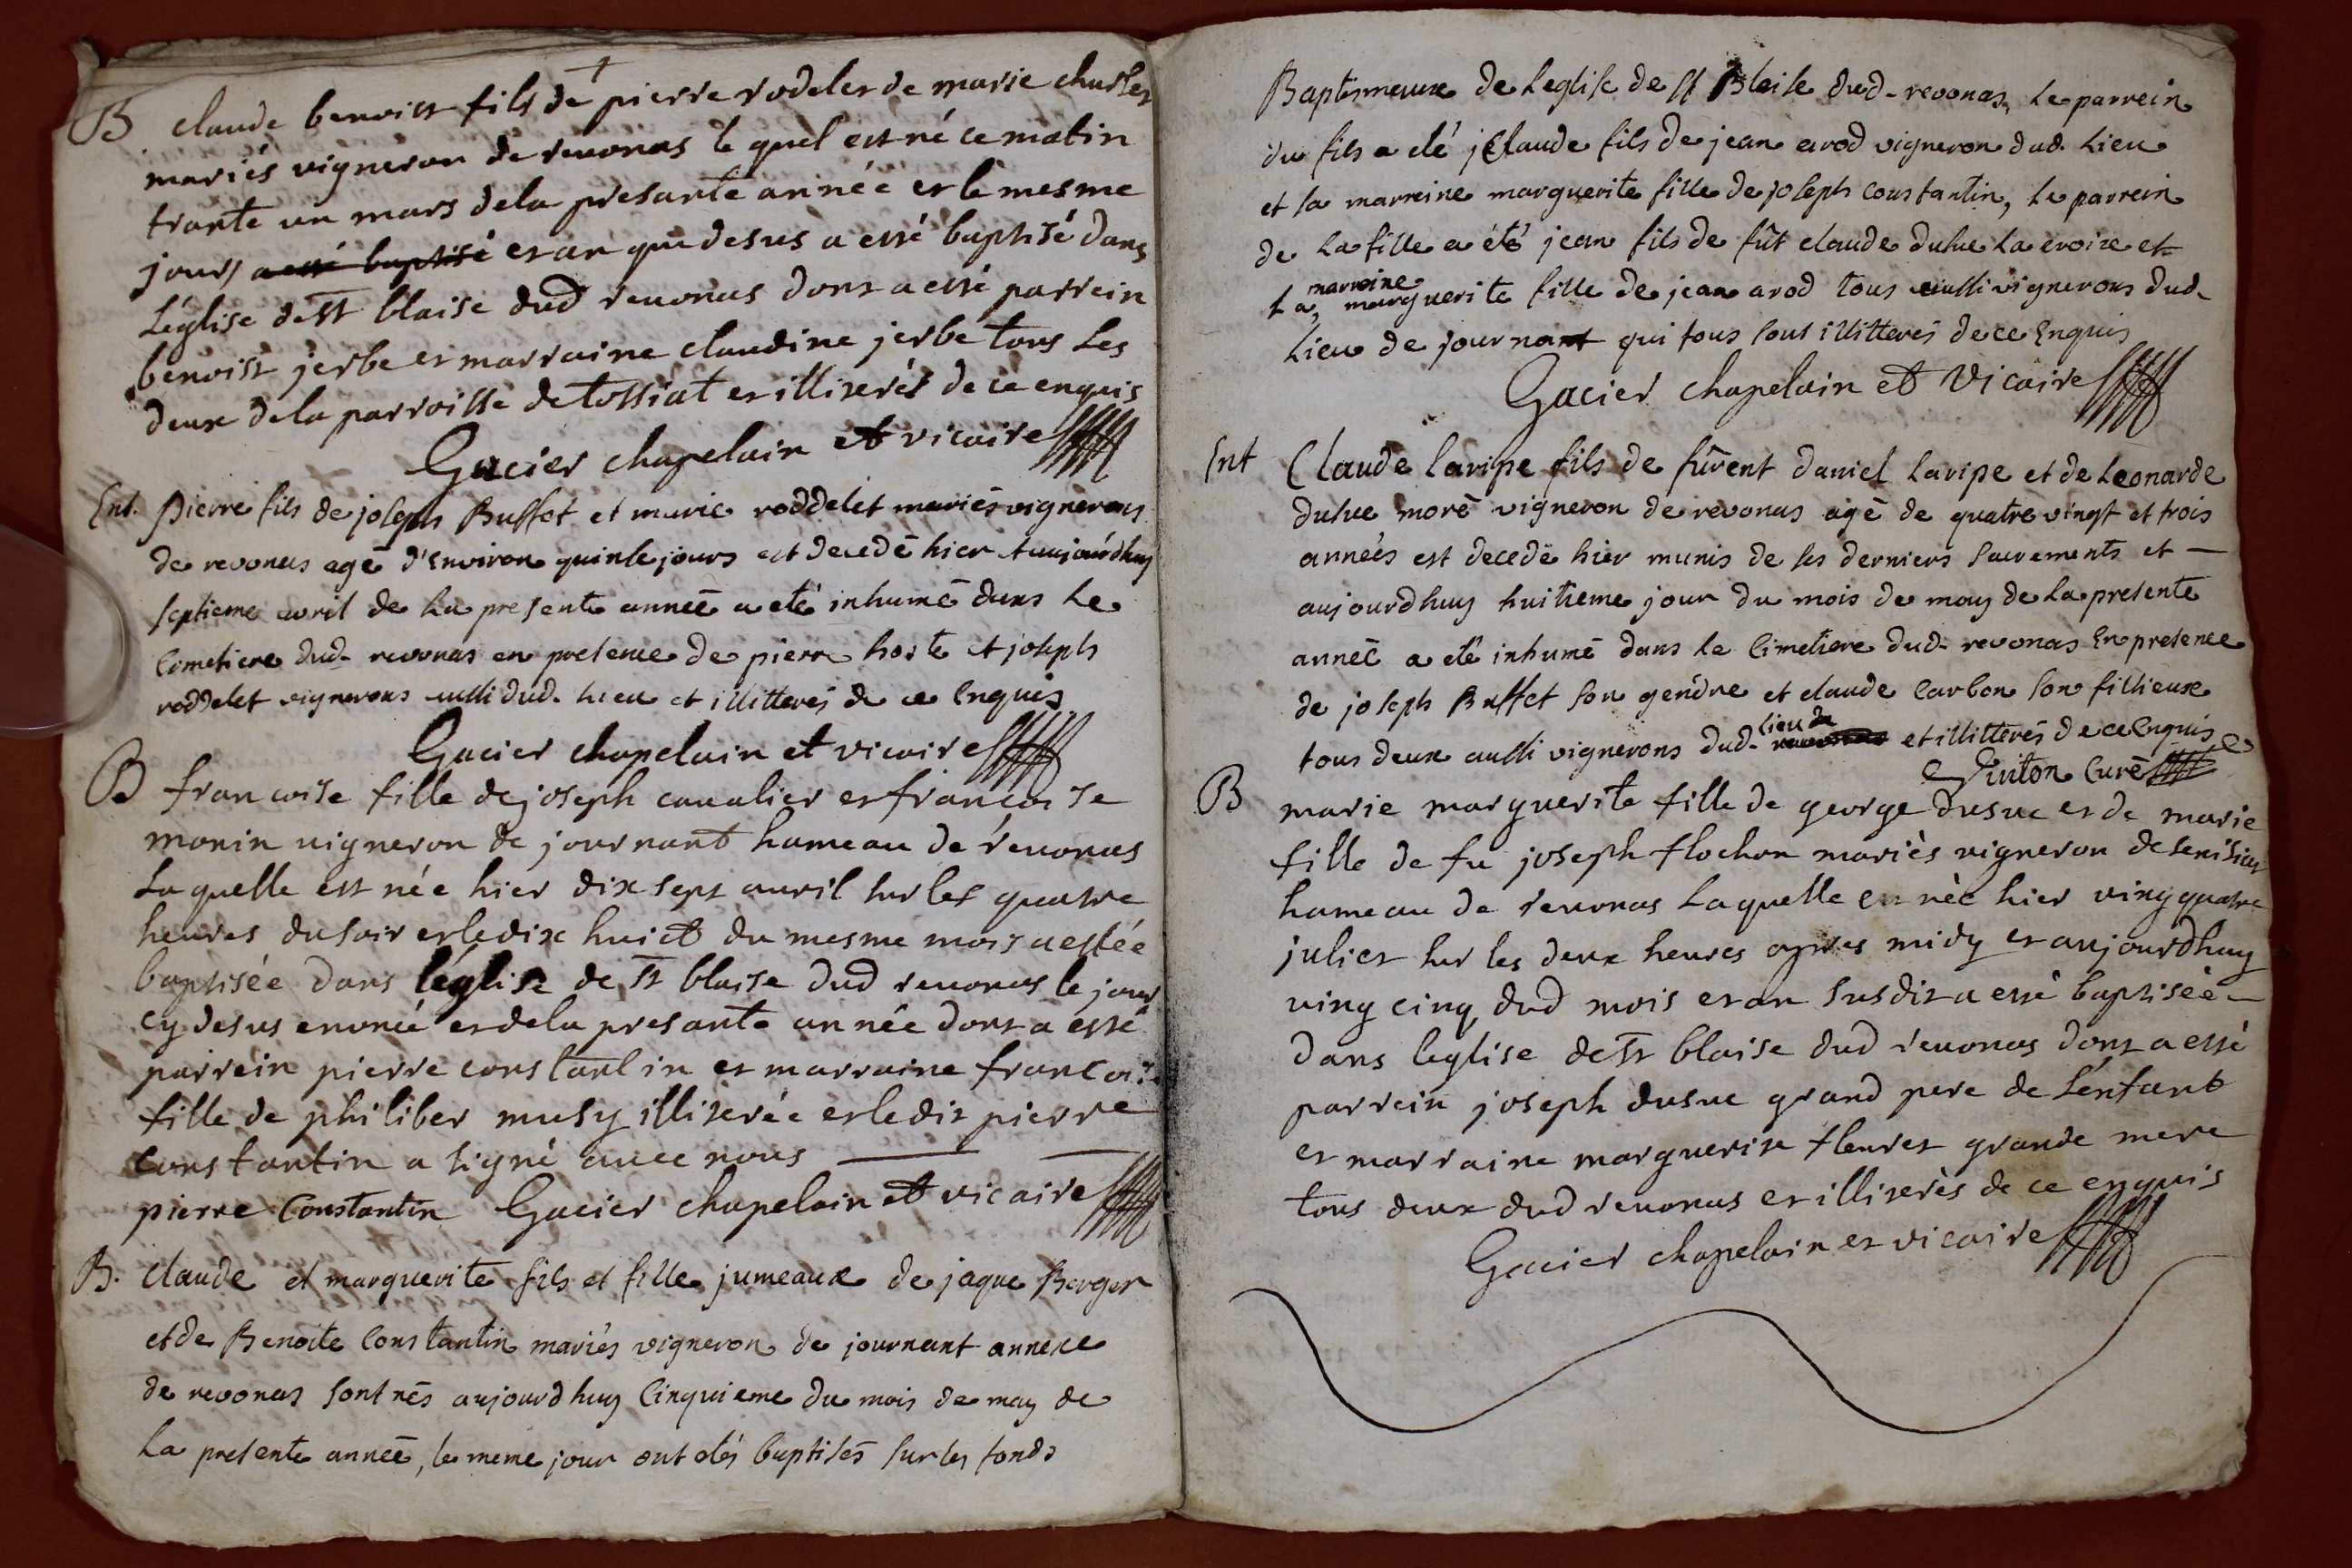 B claude benoist fils de pierre rodelet de marie charles
mariés vigneron de revonas le quel est né ce matin
trante un mars dela presante année et le mesme
jours a esté baptisé et an que desus a esté baptisé dans
l'église de St blaise dud revonas dont a esté parrein
benoist jerbe et marraine claudine jerbe tous les
deux dela parroisse de tossiat et illiterés de ce enquis
Gacier chapelain et vicaire
Ent. pierre fils de joseph Buffet et marie roddelet mariés vignerons
de revonas agé d'Environ quinse jours est decedé hier et aujourdhuy
septieme avril de la presente année a eté inhumé dans le
Cimetiere dud. revonas en presence de pierre hoste et joseph
roddelet vignerons aussi dud. lieu et illitterés de ce Enquis
Gacier chapelain et vicaire
B francoise fille de joseph cavalier et francoise
monin vigneron de journant hameau de revonas
la quelle est née hier dix sept avril sur les quatre
heures du soir et le dix huict du mesme mois a estée
baptisée dans l'église de St blaise dud revonas le jour
cy desus enoncé et dela presante année dont a esté
parrein pierre constantin et marraine francoise
fille de philiber musy illiterée et le dit pierre
constantin a signé avec nous
pierre Constantin Gacier chapelain et vicaire
B. claude et marguerite fils et fille jumeaux de jaque Berger
et de Benoite Constantin mariés vigneron de journant annexe
de revonas sont nés aujourdhuy Cinquieme du mois de may de
la presente année, le meme jour ont etés baptisés sur les fonds
Baptismeaux de leglise de St Blaise dud. revonas, le parrein
du fils a eté Claude fils de jean arod vigneron dud. lieu
et la marreine marguerite fille de joseph constantin, le parrein
de la fille a été jean fils de fût claude dusue la croix et
la marreine marguerite fille de jean arod tous aussi vignerons dud.
lieu de journant qui tous sont illitterés de ce Enquis
Gacier chapelain et vicaire
Ent Claude laripe fils de fûrent daniel laripe et de Leonarde
dusue moré vigneron de revonas agé de quatre vingt et trois
années est decedé hier munis de ses derniers sacrements et —
aujourdhuy huitieme jour du mois de may de la presente
année a eté inhumé dans le Cimetiere dud. revonas En presence
de joseph Buffet son gendre et claude Carbon son fillieux
tous deux aussi vignerons dud. lieu de revonas et illitterés de ce Enquis
Guiton Curé
B marie marguerite fille de george dusue et de marie
fille de fu joseph flochon mariés vigneron de senissiat
hameau de revonas laquelle est née hier ving quatre
juliet sur les deux heures apres midy et aujourdhuy
ving cinq dud mois et an susdit a esté baptisée
dans leglise de St blaise dud revonas dont a esté
parrein joseph dusue grand pere de l'enfant
et marraine marguerite fleuret grande mere
tous deux dud revonas et illiterés de ce enquis
Gacier chapelain et vicaire